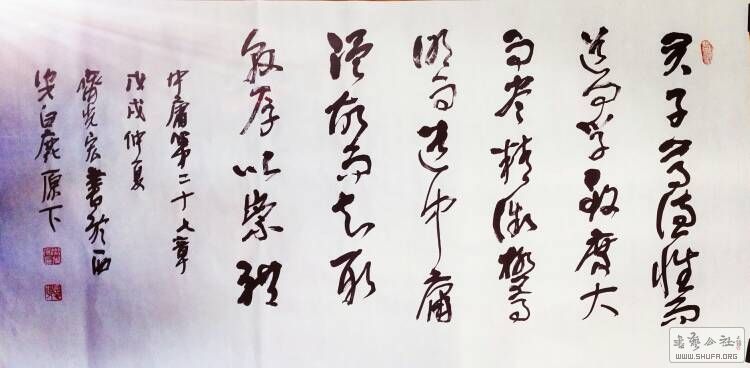 君子尊德性而
道问学致廣大
而尽精微極高
明而道中庸
温故而知新
敦厚以崇礼
中庸第二十七章
戊戌仲夏
光宏書於西
安白鹿原下
书艺公社
WWW.SHUFA.ORG